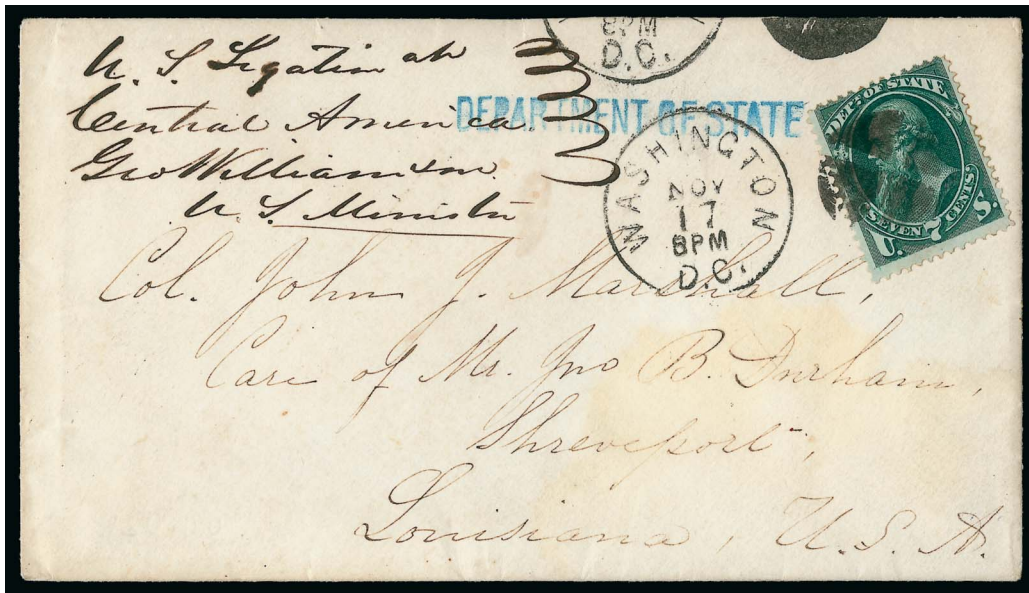 8PM
D.C.
U. S. Legation at
Central America.
Geo Williamson
U S Minister
DEPARTMENT OF STATE
WASHINGTON
NOV
17
8PM
D.C.
DEP'T OF STATE
SEVEN 7 CENTS
U. S.
Col. John J. Marshall,
Care of Mr. Jno B. Durham,
Shreveport,
Louisiana, U. S. A.